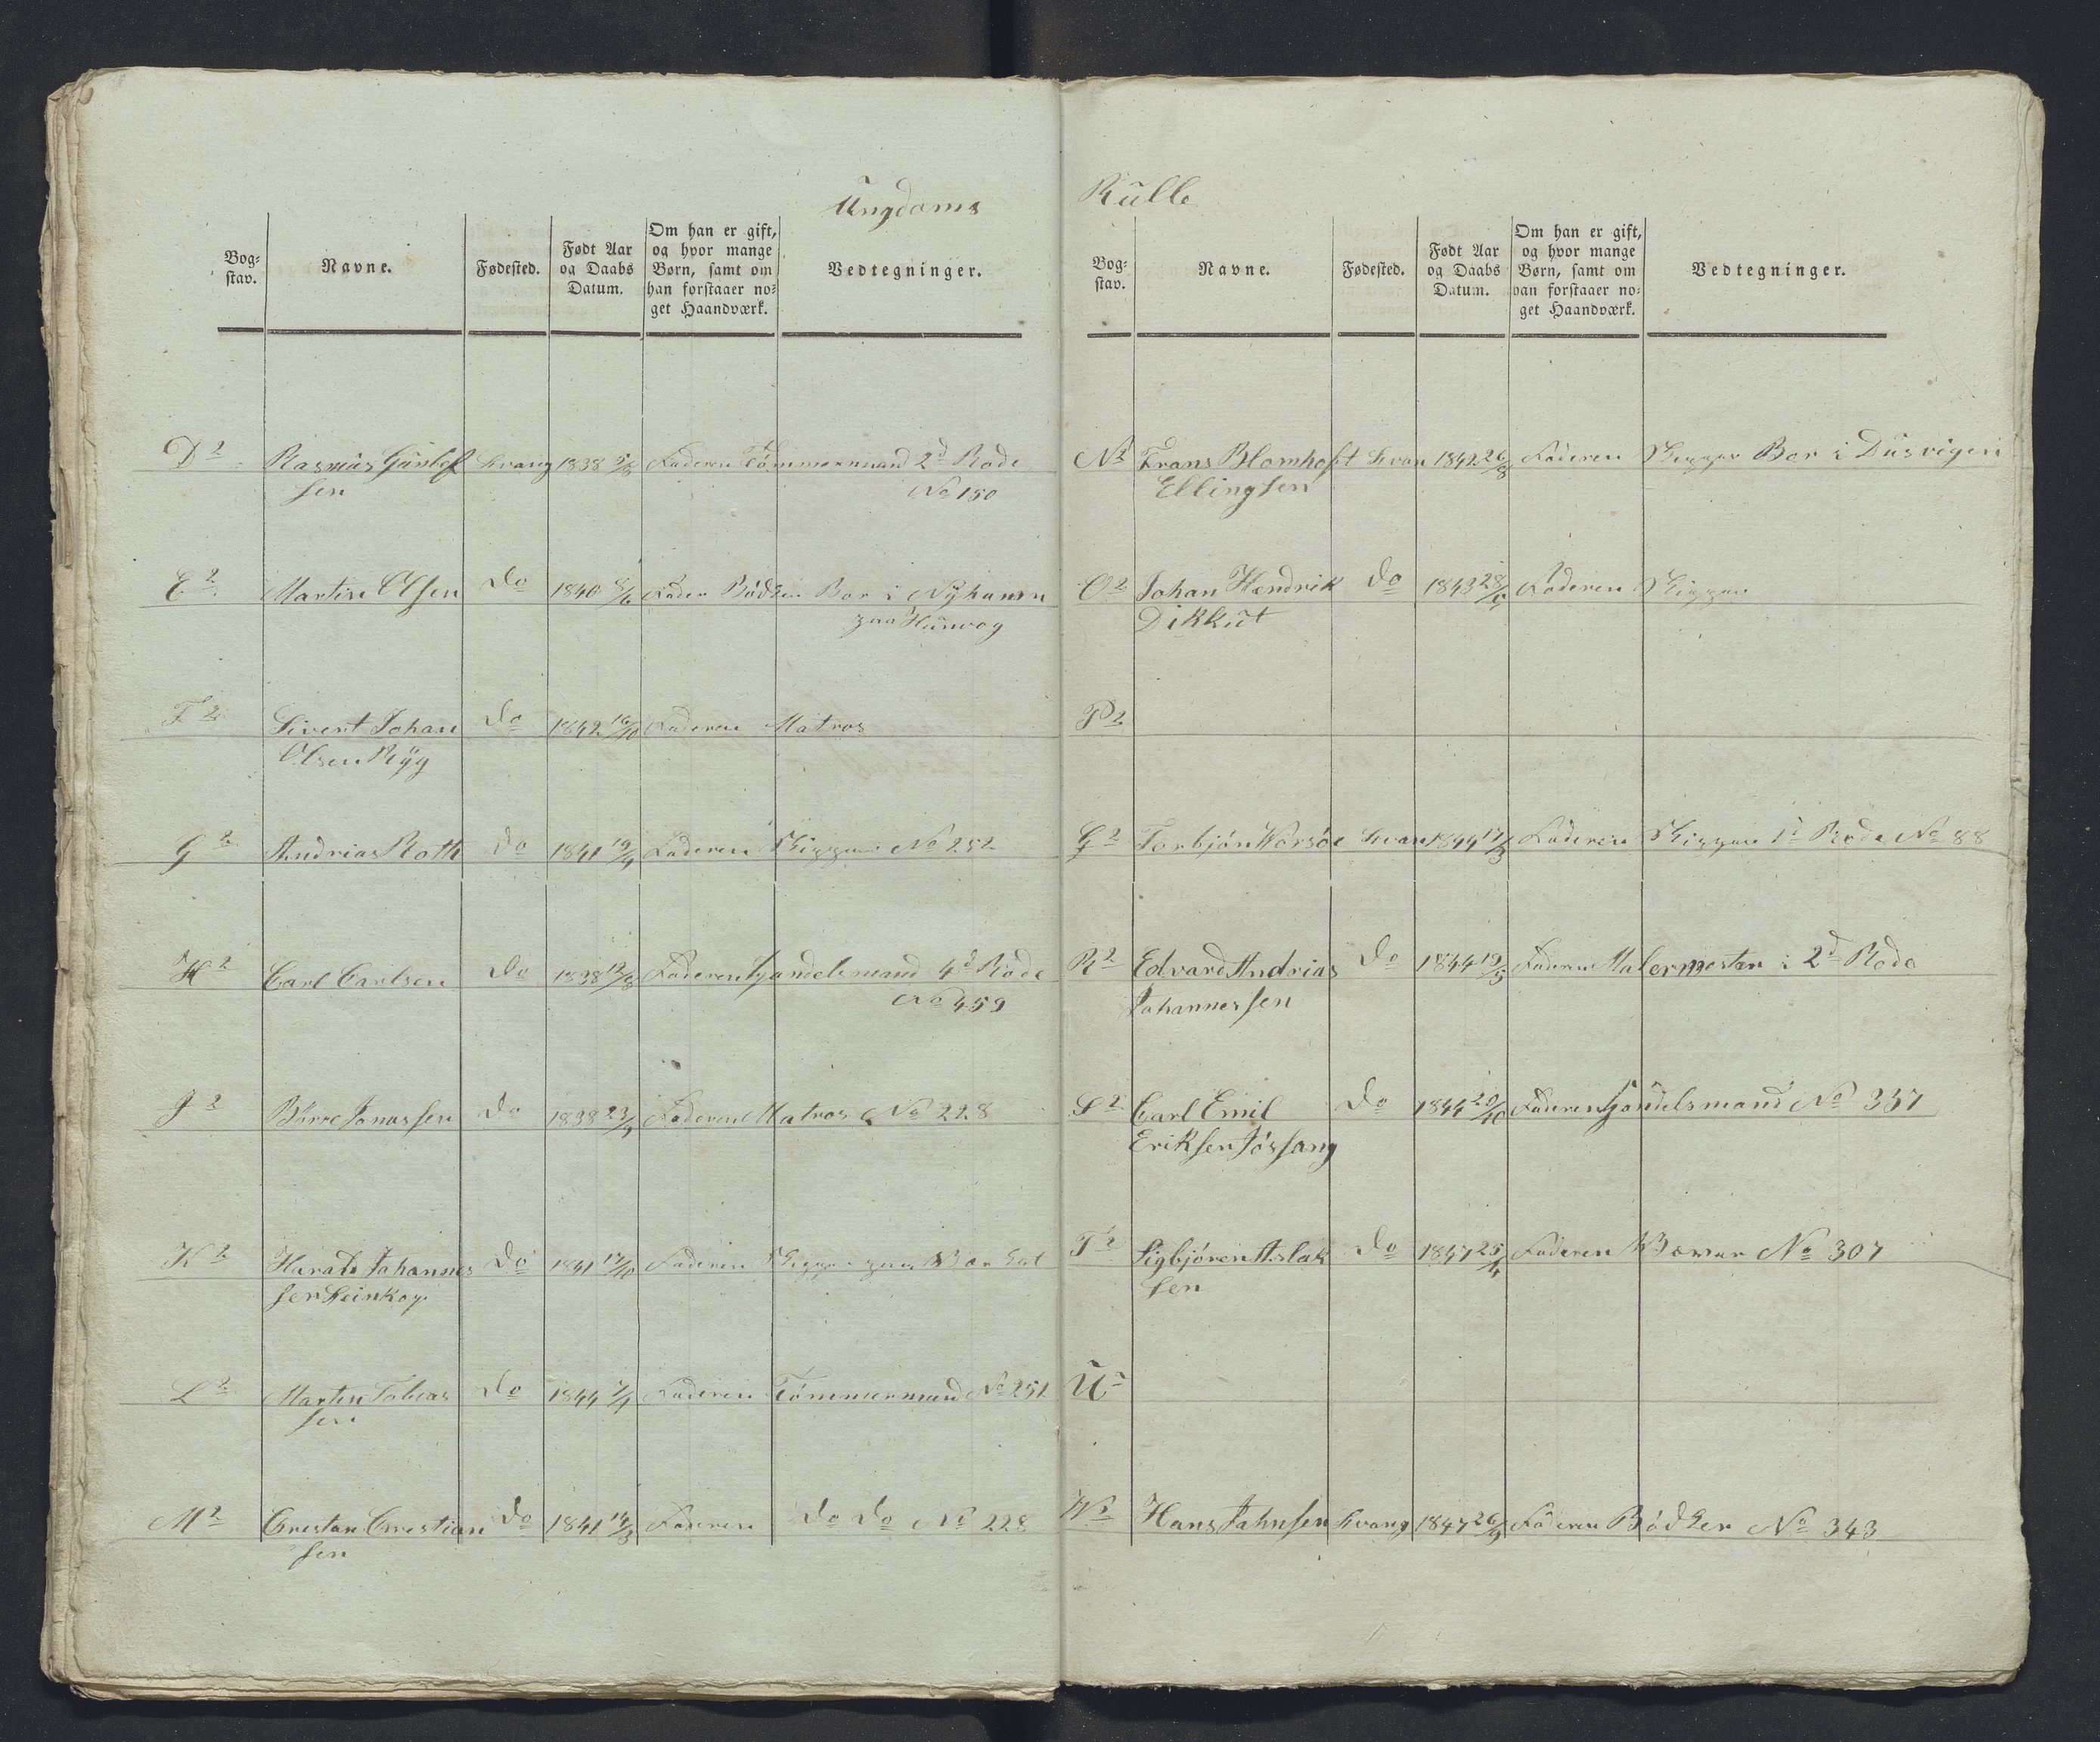 Ungdoms
Bog-
stav.
Navne.
Fødested.
Født Aar
og Daabs
Datum.
Om han er gift,
og hvor mange
Børn, samt om
han forstaaer no-
get Haandværk.
Vedtegninger.
D 2 Rasmus Gunlef Svang 1838 5/8 Faderen Tömmermand 2d Rode
sen No 150
E 2 Martin Olsen Do 1840 8/6 Fader Bödker Bor i Nÿhaven
paa Hunvog
F 2 Sivert Johan Do 1842 16/10 Faderen Matros
Olsen Rÿg
G 2 Andrias Roth Do 1841 19/4 Faderen Skipper No 252
H 2 Carl Carlsen Do 1838 12/8 Faderen Handelsmand 4d Rode
No 459
J 2 Börre Jonassen Do 1838 23/9 Faderen Matros No 228
K 2 Harald Johannes Do 1841 17/10 Faderen Skipper paa
sen
L 2 Martin Tobias Do 1844 7/4 Faderen Tömmermand No 251
sen
M 2 Crestan Crestian Do 1841 14/3 Faderen Do Do No 228
sen
Rulle
Bog-
stav.
Navne.
Fødested.
Født Aar
og Daabs
Datum.
Om han er gift,
og hvor mange
Børn, samt om
han forstaaer no-
get Haandværk.
Vedtegninger.
N 2 Frans Blomhoft Svan 1842 26/8 Faderen Skipper Bor i Dusvigen
Ellingsen
O 2 Johan Hendrik Do 1843 28/ Faderen Skipper
Dikkut
P 2
Q 2 Torbjön Korsöe Svan 1844 17/3 Faderen Skipper 1t Rode No 88
R 2 Edvard Andrias Do 1844 19/5 Faderen Malermester i 2d Rode
Johannessen
S 2 Carl Emil Do 1844 20/10 Faderen Handelsmand No 357
Eriksen Jössang
T 2 Sigbjören Aslak Do 1847 25/4 Faderen Væver No 307
sen
U 2
W 2 Hans Jahnsen Svang 1847 26/9 Faderen Bödker No 343